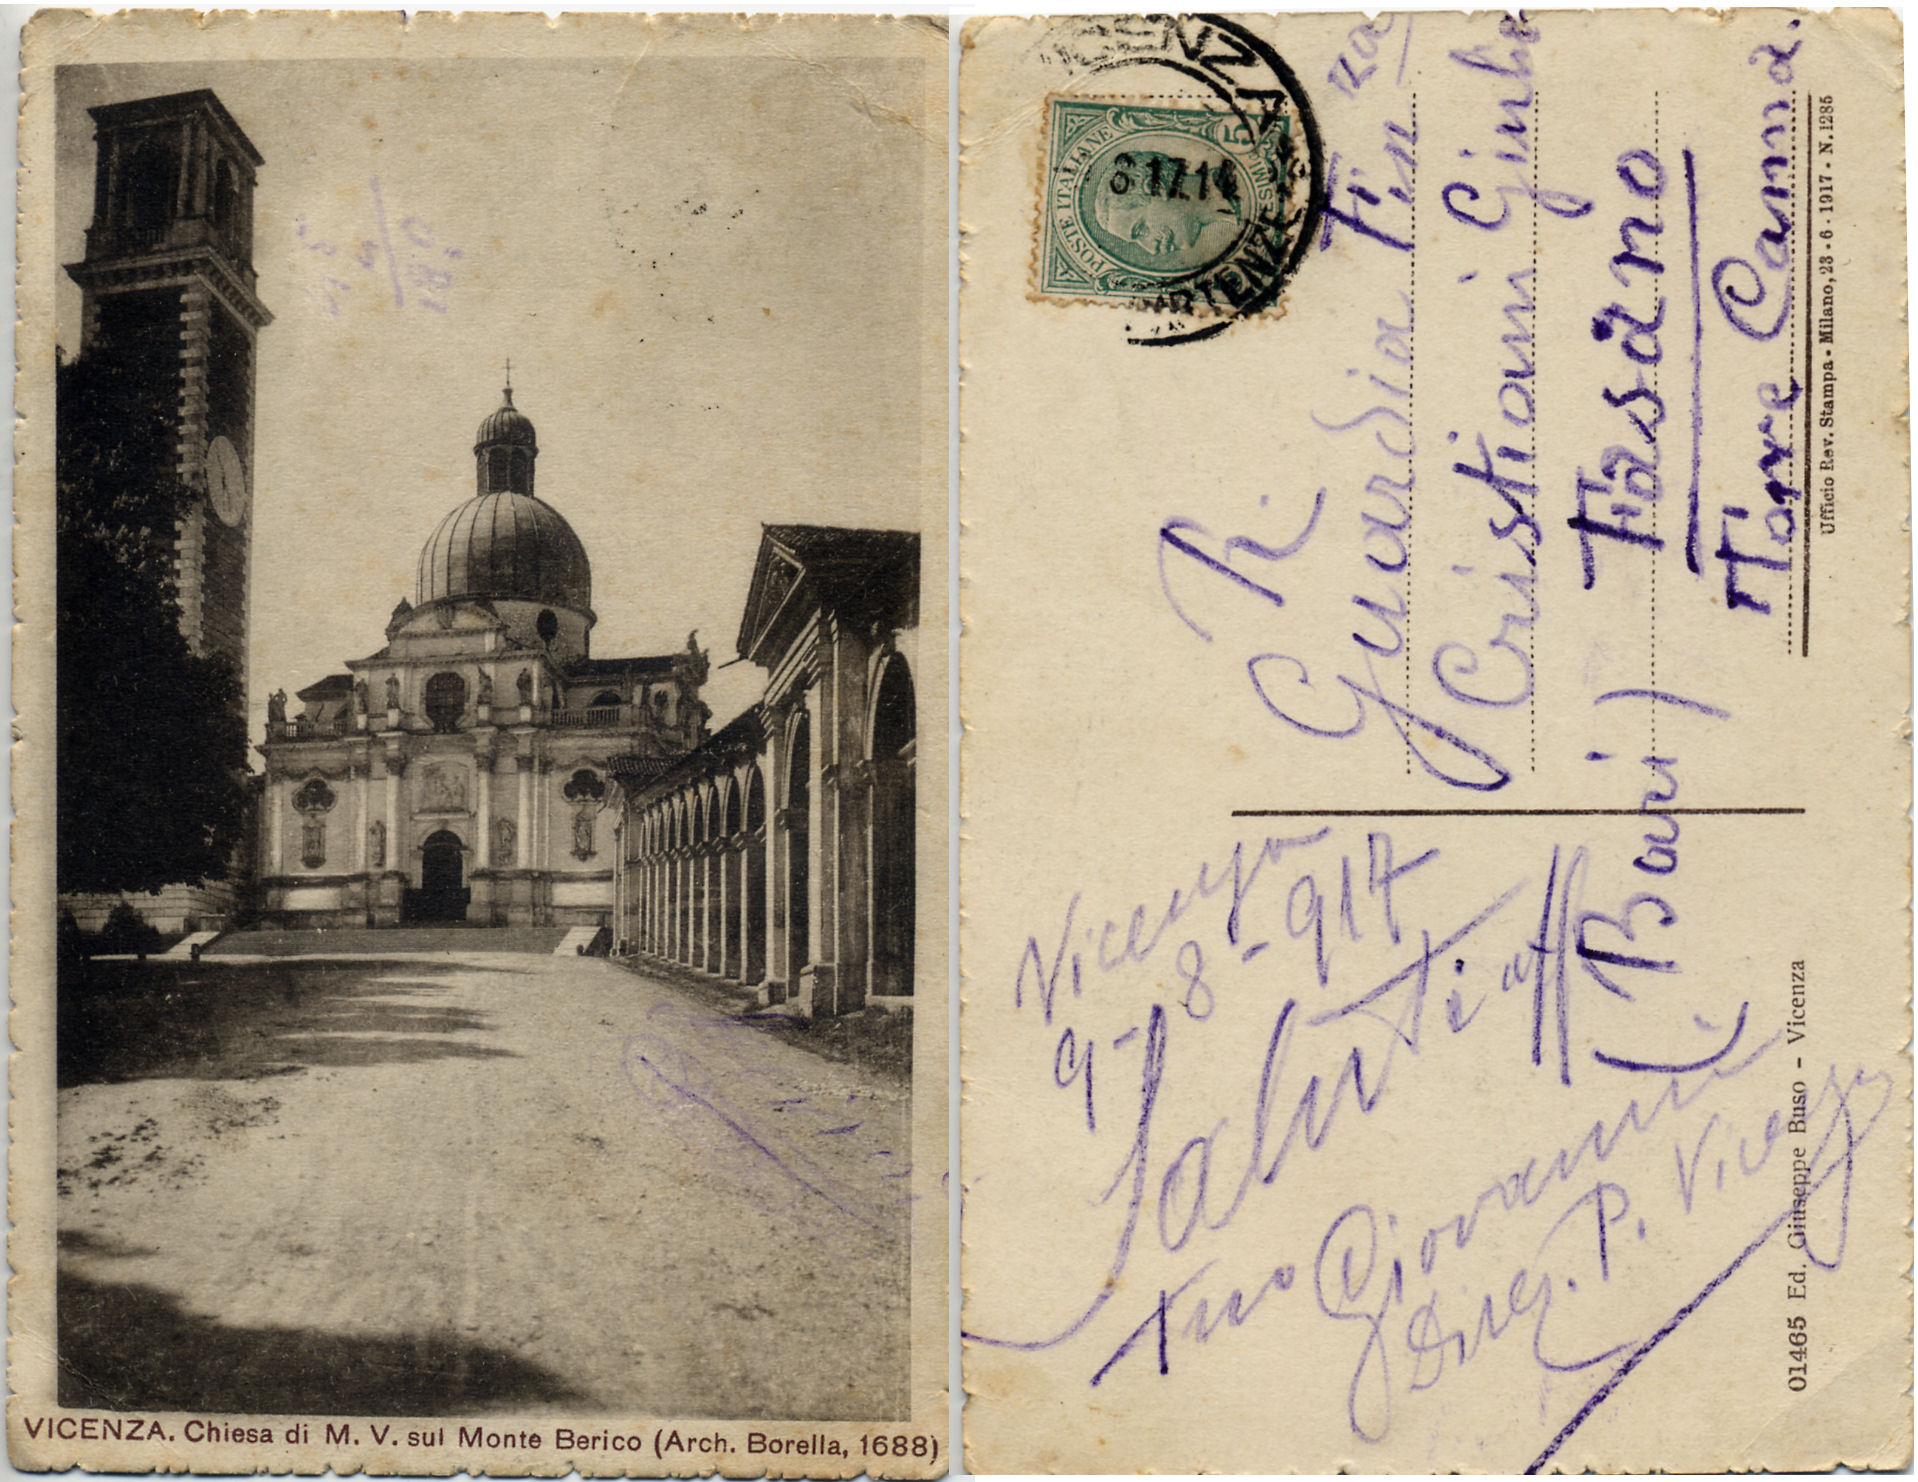 VICENZA. Chiesa di M. V. sul Monte Berico (Arch. Borella, 1688)
POSTE ITALIANE
5
CENTESIMI
VICENZA
8.17.14
PARTENZE
R.
Guardia Finza
Cristiani Giulio
Fasano
(Bari)
Torre Canna.
Vicenza
9-8-917
Saluti aff
tuo Giovanni
P. Vicenza
Ufficio Rev. Stampa - Milano, 23 - 6 - 1917 - N. 1285
01465 Ed. Giuseppe Buso - Vicenza